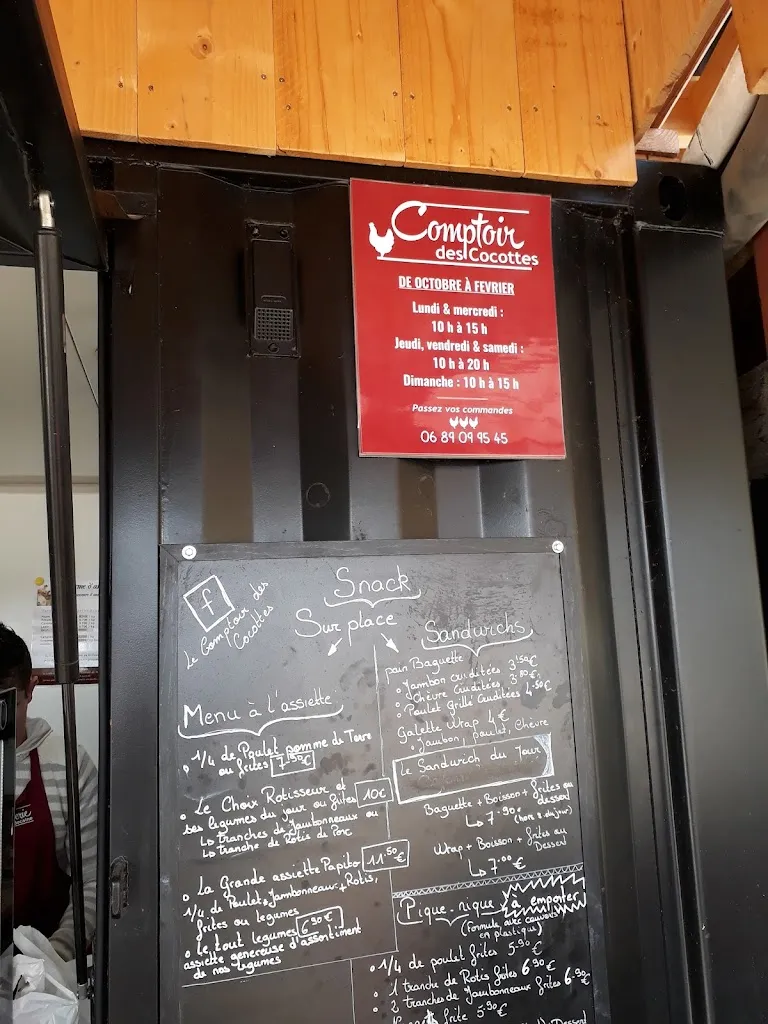 Comptoir
des Cocottes
DE OCTOBRE À FEVRIER
Lundi & mercredi :
10 h à 15 h
Jeudi, vendredi & samedi :
10 h à 20 h
Dimanche : 10 h à 15 h
Passez vos commandes
06 89 09 95 45
f
Le Comptoir des
Cocottes
Snack
Sur place
Menu à l'assiette
1/4 de Poulet pomme de Terre
ou frites 7,50€
Le Choix Rotisseur et
ses legumes du jour ou frites 10€
tranches de Jambonneaux ou
tranche de Rotis de Porc
La Grande assiette Papito 11.50€
1/4 de Poulet, Jambonneaux, + Rotis,
frites ou legumes
Le tout legumes 6,90€
assiette genereuse d'assortiment
de nos legumes
Sandwichs
pain Baguette
Jambon cruditées 3,50€
Chèvre Crudités 3,80€
Poulet Grillé Crudités 4,50€
Galette Wrap 4€
Jambon, poulet, Chèvre
Le Sandwich du Jour
Baguette + Boisson + frites ou
dessert
7.90€ (hors s. du jour)
Wrap + Boisson + frites ou
Dessert
7.00€
Pique-nique à emporter
(Formule, avec couverts
en plastique)
1/4 de poulet frites 5,90€
1 tranche de Rotis frites 6,90€
2 tranches de Jambonneaux frites 6,90€
frite 5,90€
Dessert